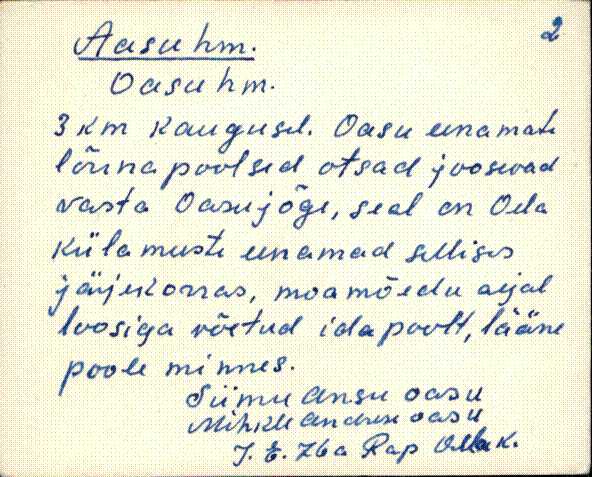 2
Aasu hm.
Oasu hm.
3 km kaugusel. Oasu einamate
lõunapoolsed otsad joosevad
vasta Oasu jõge, seal on Oela
küla muste einamad sellises
järjekorras, moamõedu aejal
loosiga võetud ida poolt, lääne
poole minnes.
Siimu Ansu oasu
Mihkle Andruse oasu
J. E. 76a Rap